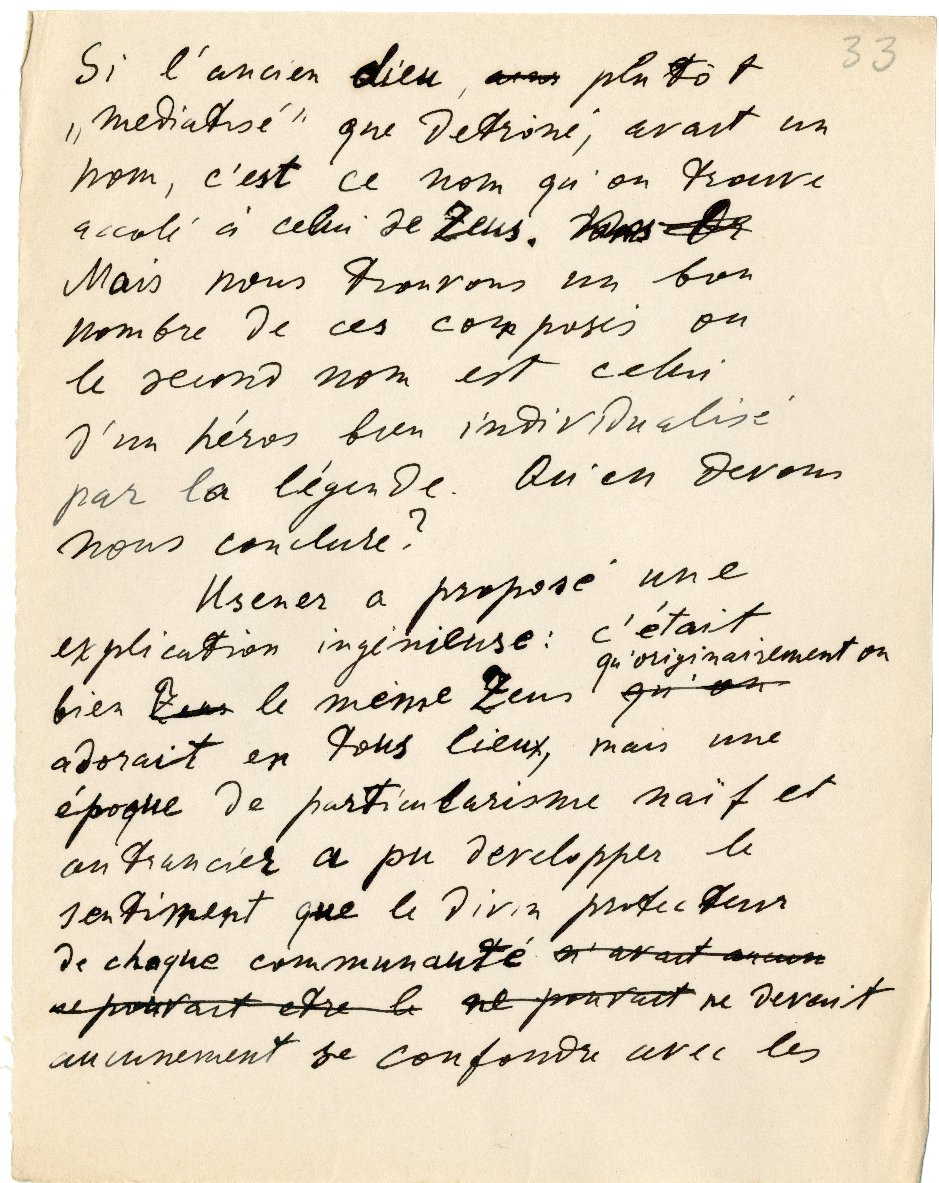 33
Si l'ancien dieu, plutôt
„mediatisé" que detrôné, avait un
nom, c'est ce nom qu'on trouve
accolé à celui de Zeus.
Mais nous trouvons un bon
nombre de ces composés ou
le second nom est celui
d'un héros bien individualisé
par la légende. Qu'en devons
nous conclure?
Usener a proposé une
explication ingénieuse: c'était
qu'originairement on
bien Zeus le même Zeus qu'on
adorait en tous lieux, mais une
époque de particularisme naïf et
outrancier a pu developper le
sentiment que le divin protecteur
de chaque communauté n'avait aucun
ne pouvait etre le ne pouvait ne devait
aucunement se confondre avec les